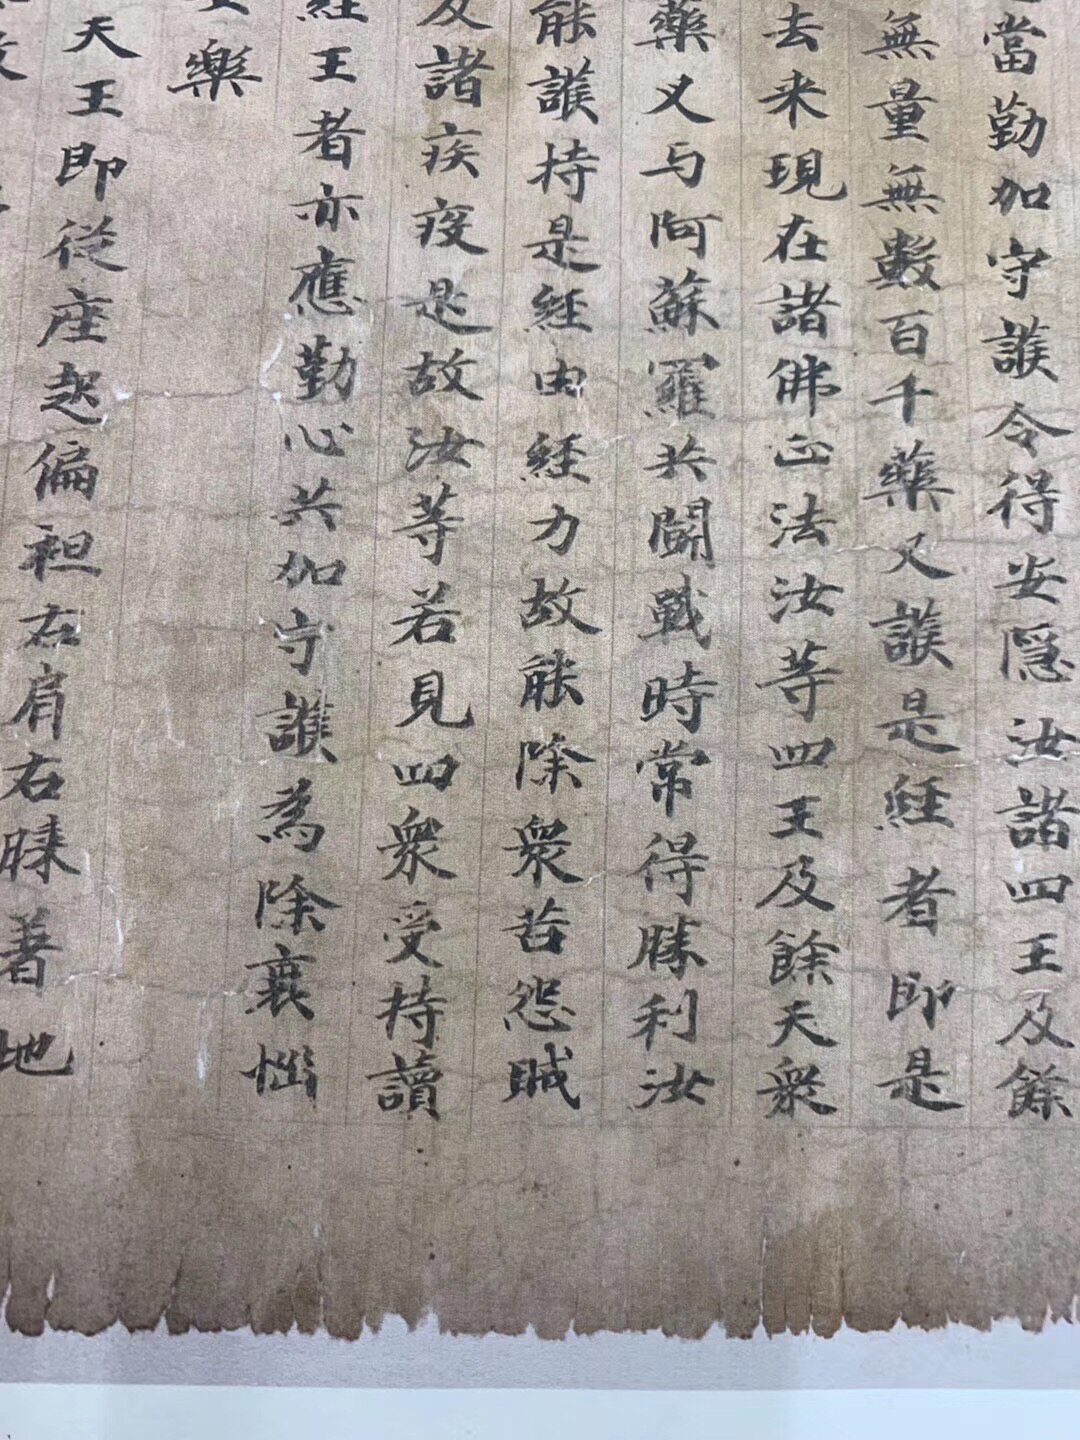 當勤加守護令得安隱汝諸四王及餘
無量無數百千藥叉護是經者即是
去来現在諸佛正法汝等四王及餘天衆
藥叉与阿蘇羅共鬪戰時常得勝利汝
能護持是經由經力故能除衆苦怨賊
及諸疾疫是故汝等若見四衆受持讀
經王者亦應勤心共加守護為除衰惱
樂
天王即從座起偏袒右肩右膝著地